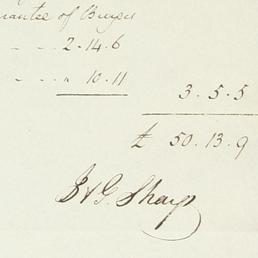 rantee of Buyers
" - - . 2.14.6
- - .. " 10.11
3.5.5
£ 50.13.9
J & G. Sharp